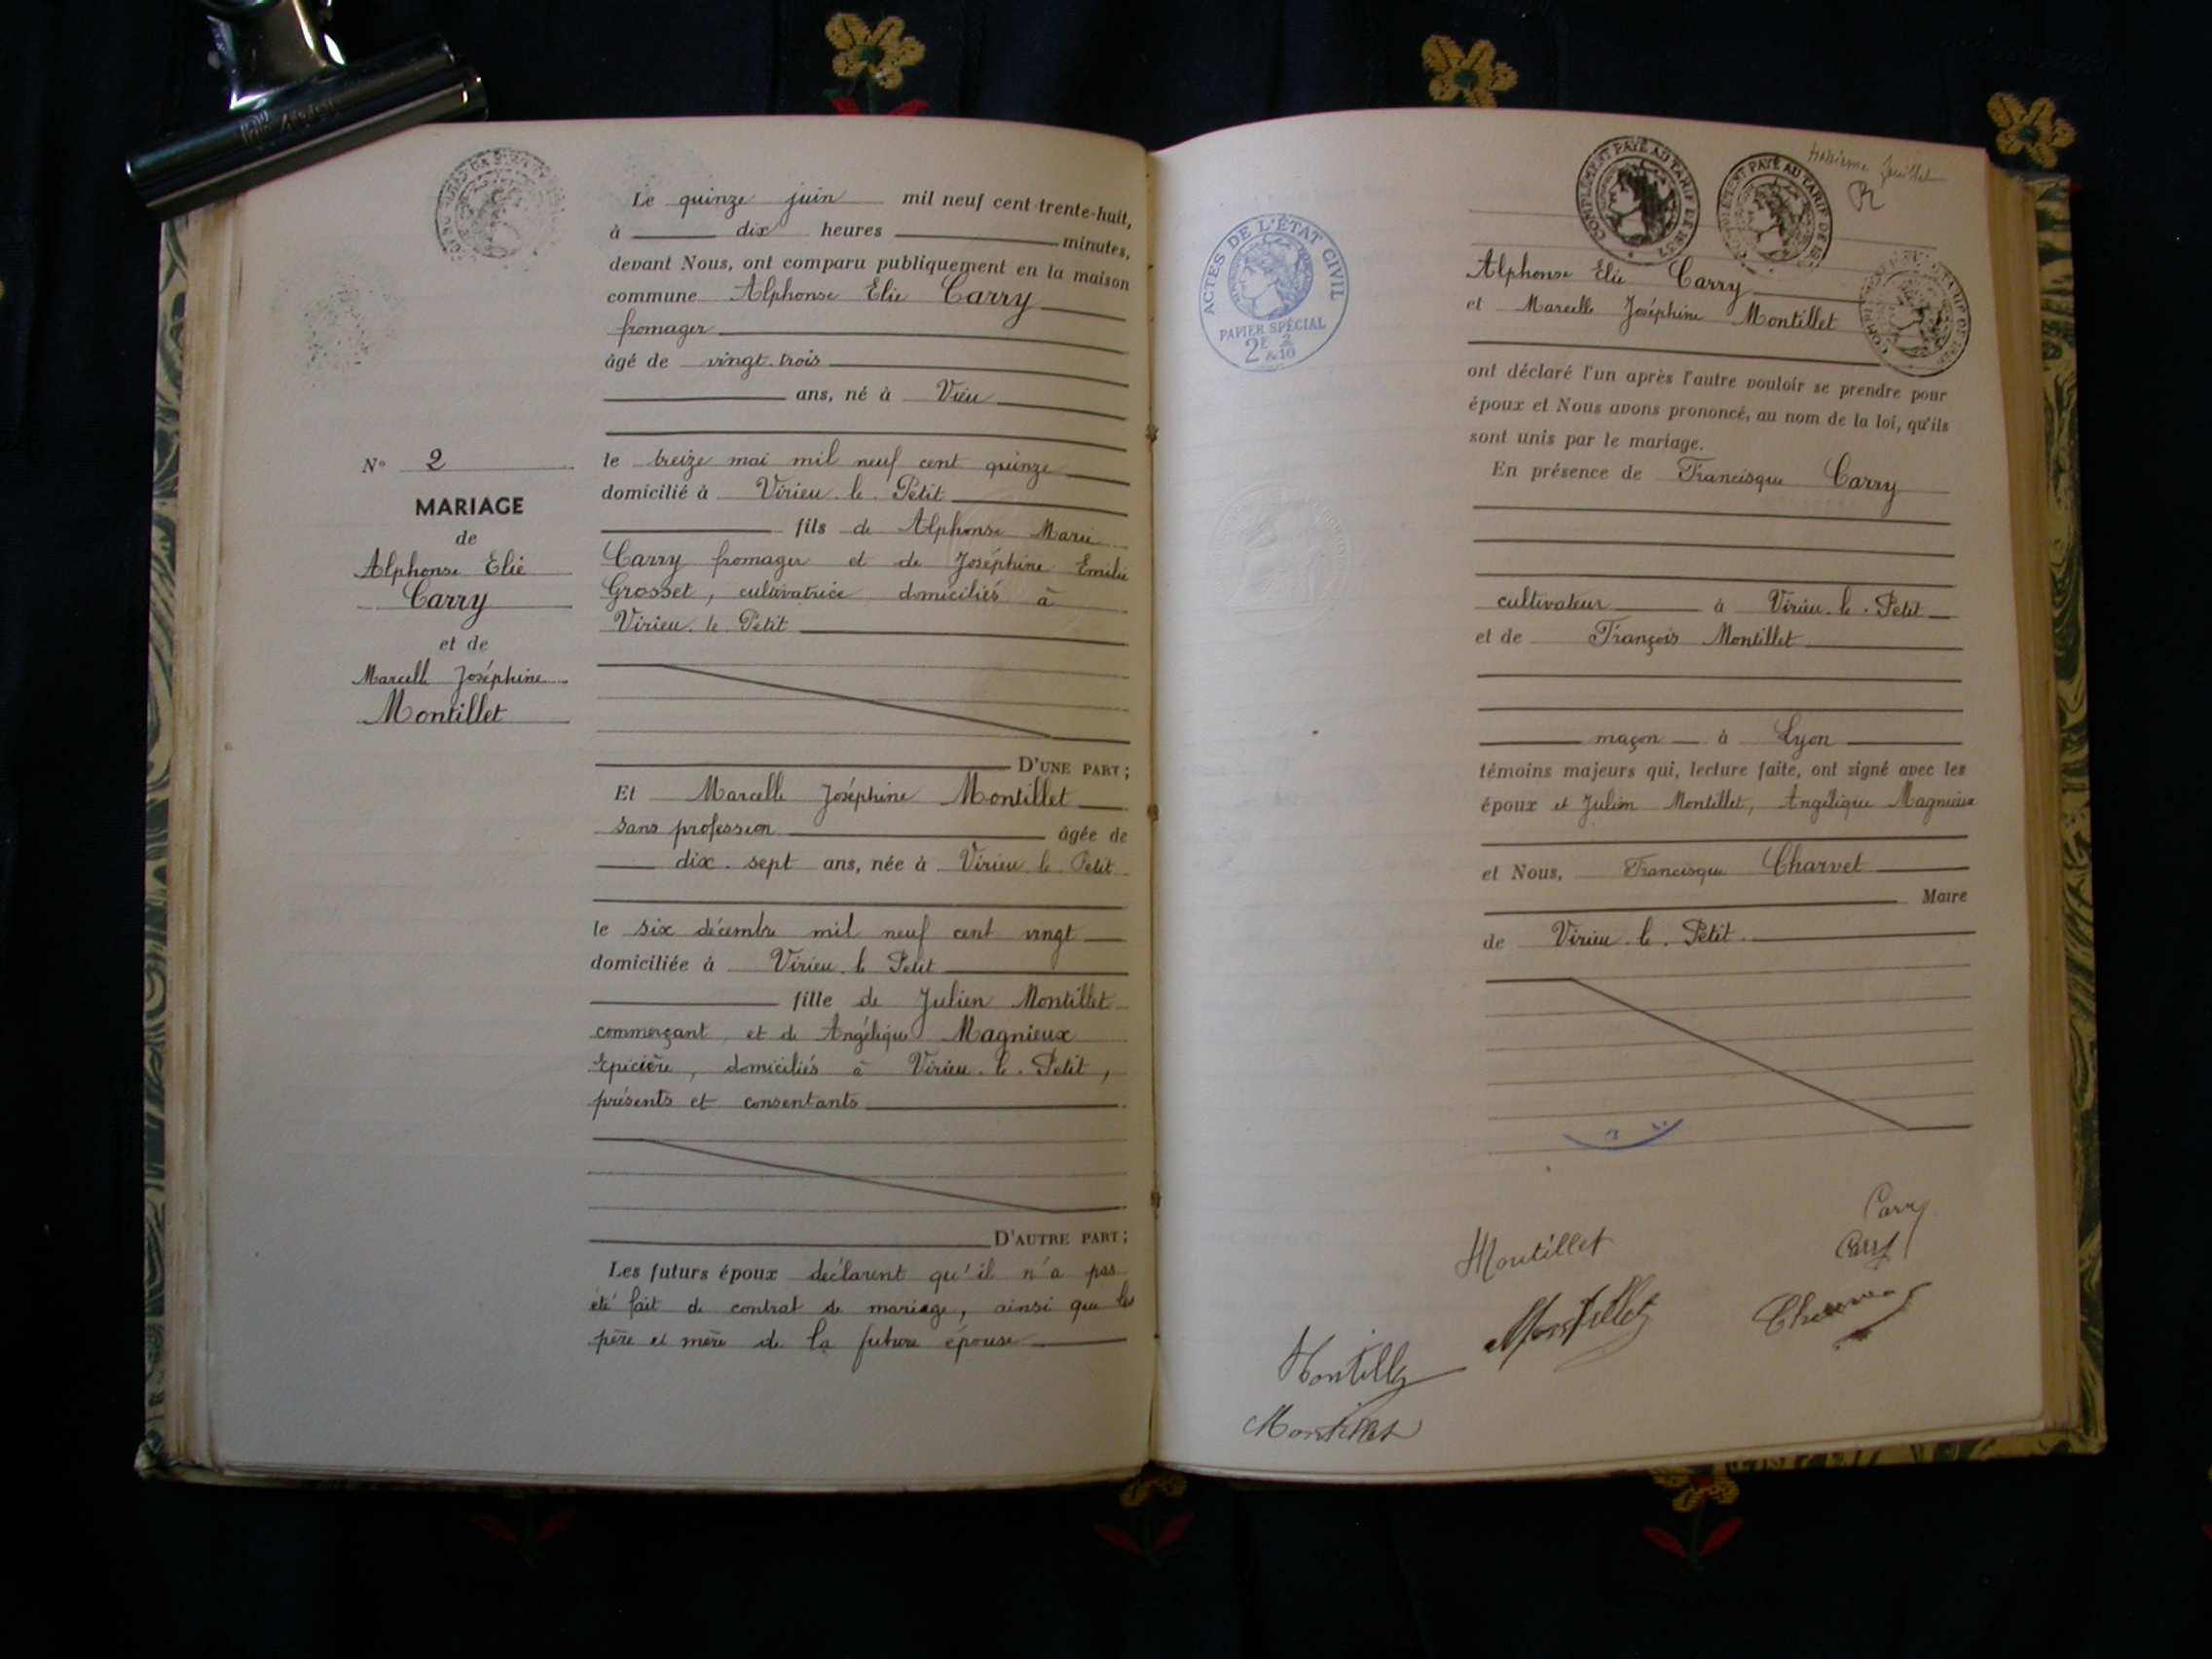 Le quinze juin mil neuf cent trente-huit,
à dix heures minutes,
devant Nous, ont comparu publiquement en la maison
commune Alphonse Elie Carry
fromager
âgé de vingt-trois
ans, né à Vieu
le treize mai mil neuf cent quinze
domicilié à Virieu-le-Petit
fils de Alphonse Marie
Carry fromager et de Joséphine Emilie
Grosset, cultivatrice domiciliés à
Virieu-le-Petit
D'UNE PART;
N° 2
MARIAGE
de
Alphonse Elie
Carry
et de
Marcelle Joséphine
Montillet
Et Marcelle Joséphine Montillet
sans profession âgée de
dix-sept ans, née à Virieu le Petit
le six décembre mil neuf cent vingt
domiciliée à Virieu-le Petit
fille de Julien Montillet
commerçant et de Angélique Magnieux
épicière, domiciliés à Virieu-le-Petit,
présents et consentants
D'AUTRE PART;
Les futurs époux déclarent qu'il n'a pas
été fait de contrat de mariage, ainsi que les
père et mère de la future épouse
troisième feuillet
COMPLÉMENT PAYÉ AU TARIF DE 1937
COMPLÉMENT PAYÉ AU TARIF DE
ACTES DE L'ÉTAT CIVIL
PAPIER SPÉCIAL
2F &
2/10
Alphonse Elie Carry
et Marcelle Joséphine Montillet
ont déclaré l'un après l'autre vouloir se prendre pour
époux et Nous avons prononcé, au nom de la loi, qu'ils
sont unis par le mariage.
En présence de Francisque Carry
cultivateur à Virieu-le-Petit
et de François Montillet
maçon à Lyon
témoins majeurs qui, lecture faite, ont signé avec les
époux et Julien Montillet, Angélique Magnieux
et Nous, Francisque Charvet
Maire
de Virieu-le-Petit
Carry
Montillet
Carry
Montillet
Montillet